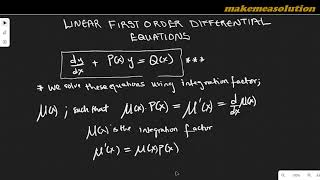 makemeasolution
LINEAR FIRST ORDER DIFFERENTIAL
EQUATIONS
dy/dx + P(x) y = Q(x) ***
* We solve these equations using integration factor;
μ(x) ; such that μ(x) · P(x) = μ'(x) = d/dx μ(x)
μ(x) is the integration factor
μ'(x) = μ(x) P(x)